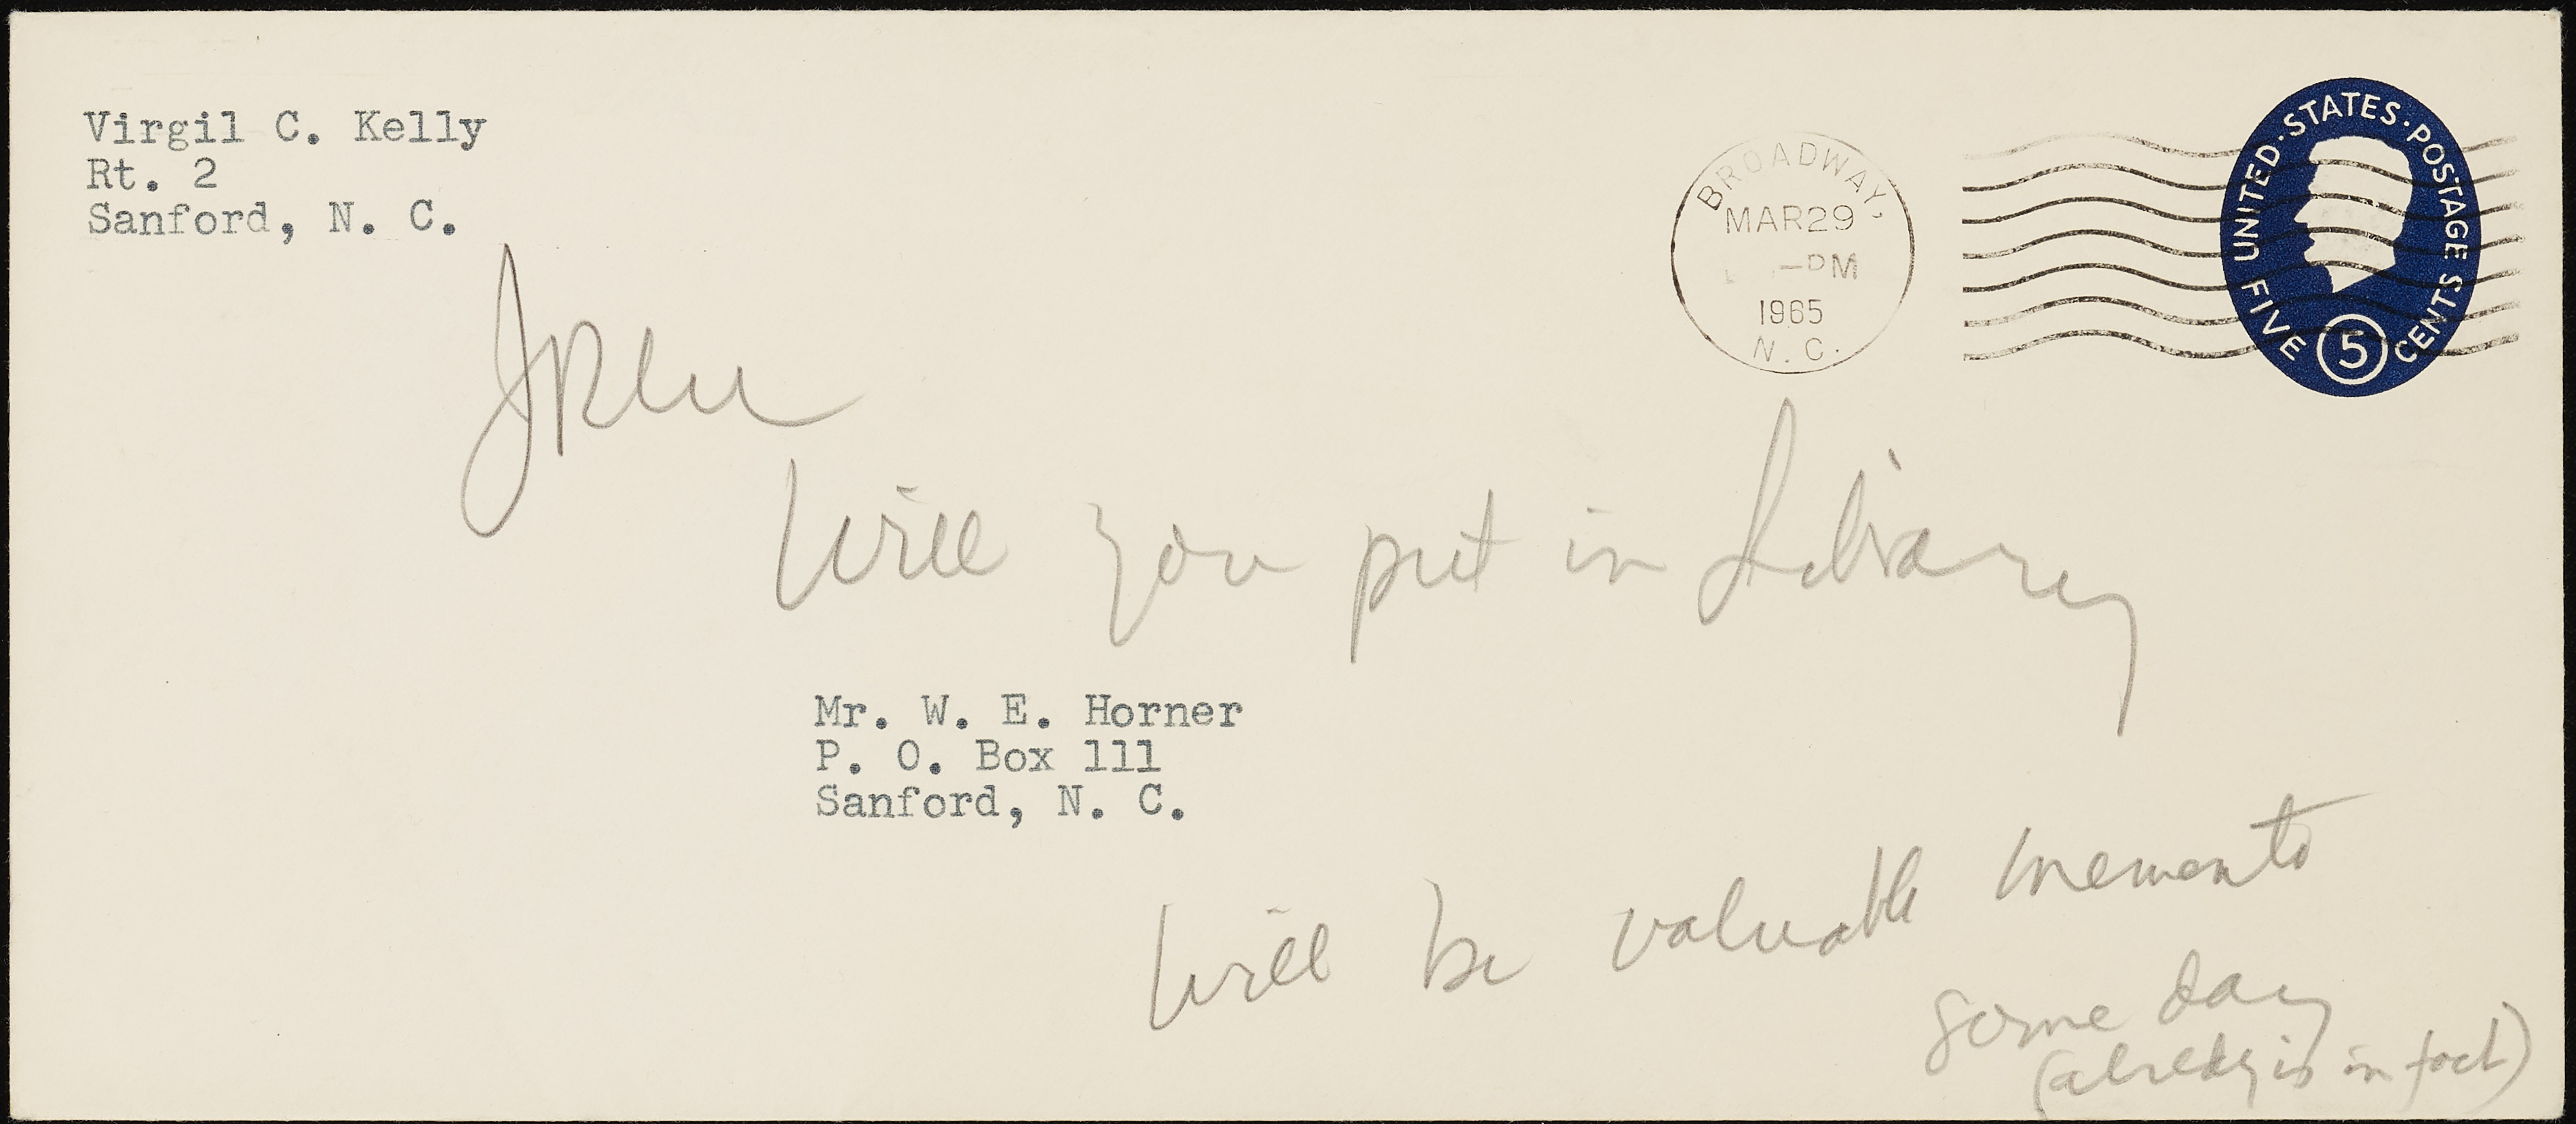 Virgil C. Kelly
Rt. 2
Sanford, N. C.
BROADWAY,
MAR29
-PM
1965
N. C.
UNITED·STATES·POSTAGE
FIVE 5 CENTS
Will you put in Library
Mr. W. E. Horner
P. O. Box 111
Sanford, N. C.
Will be valuable memento
some day
(already is in fact)